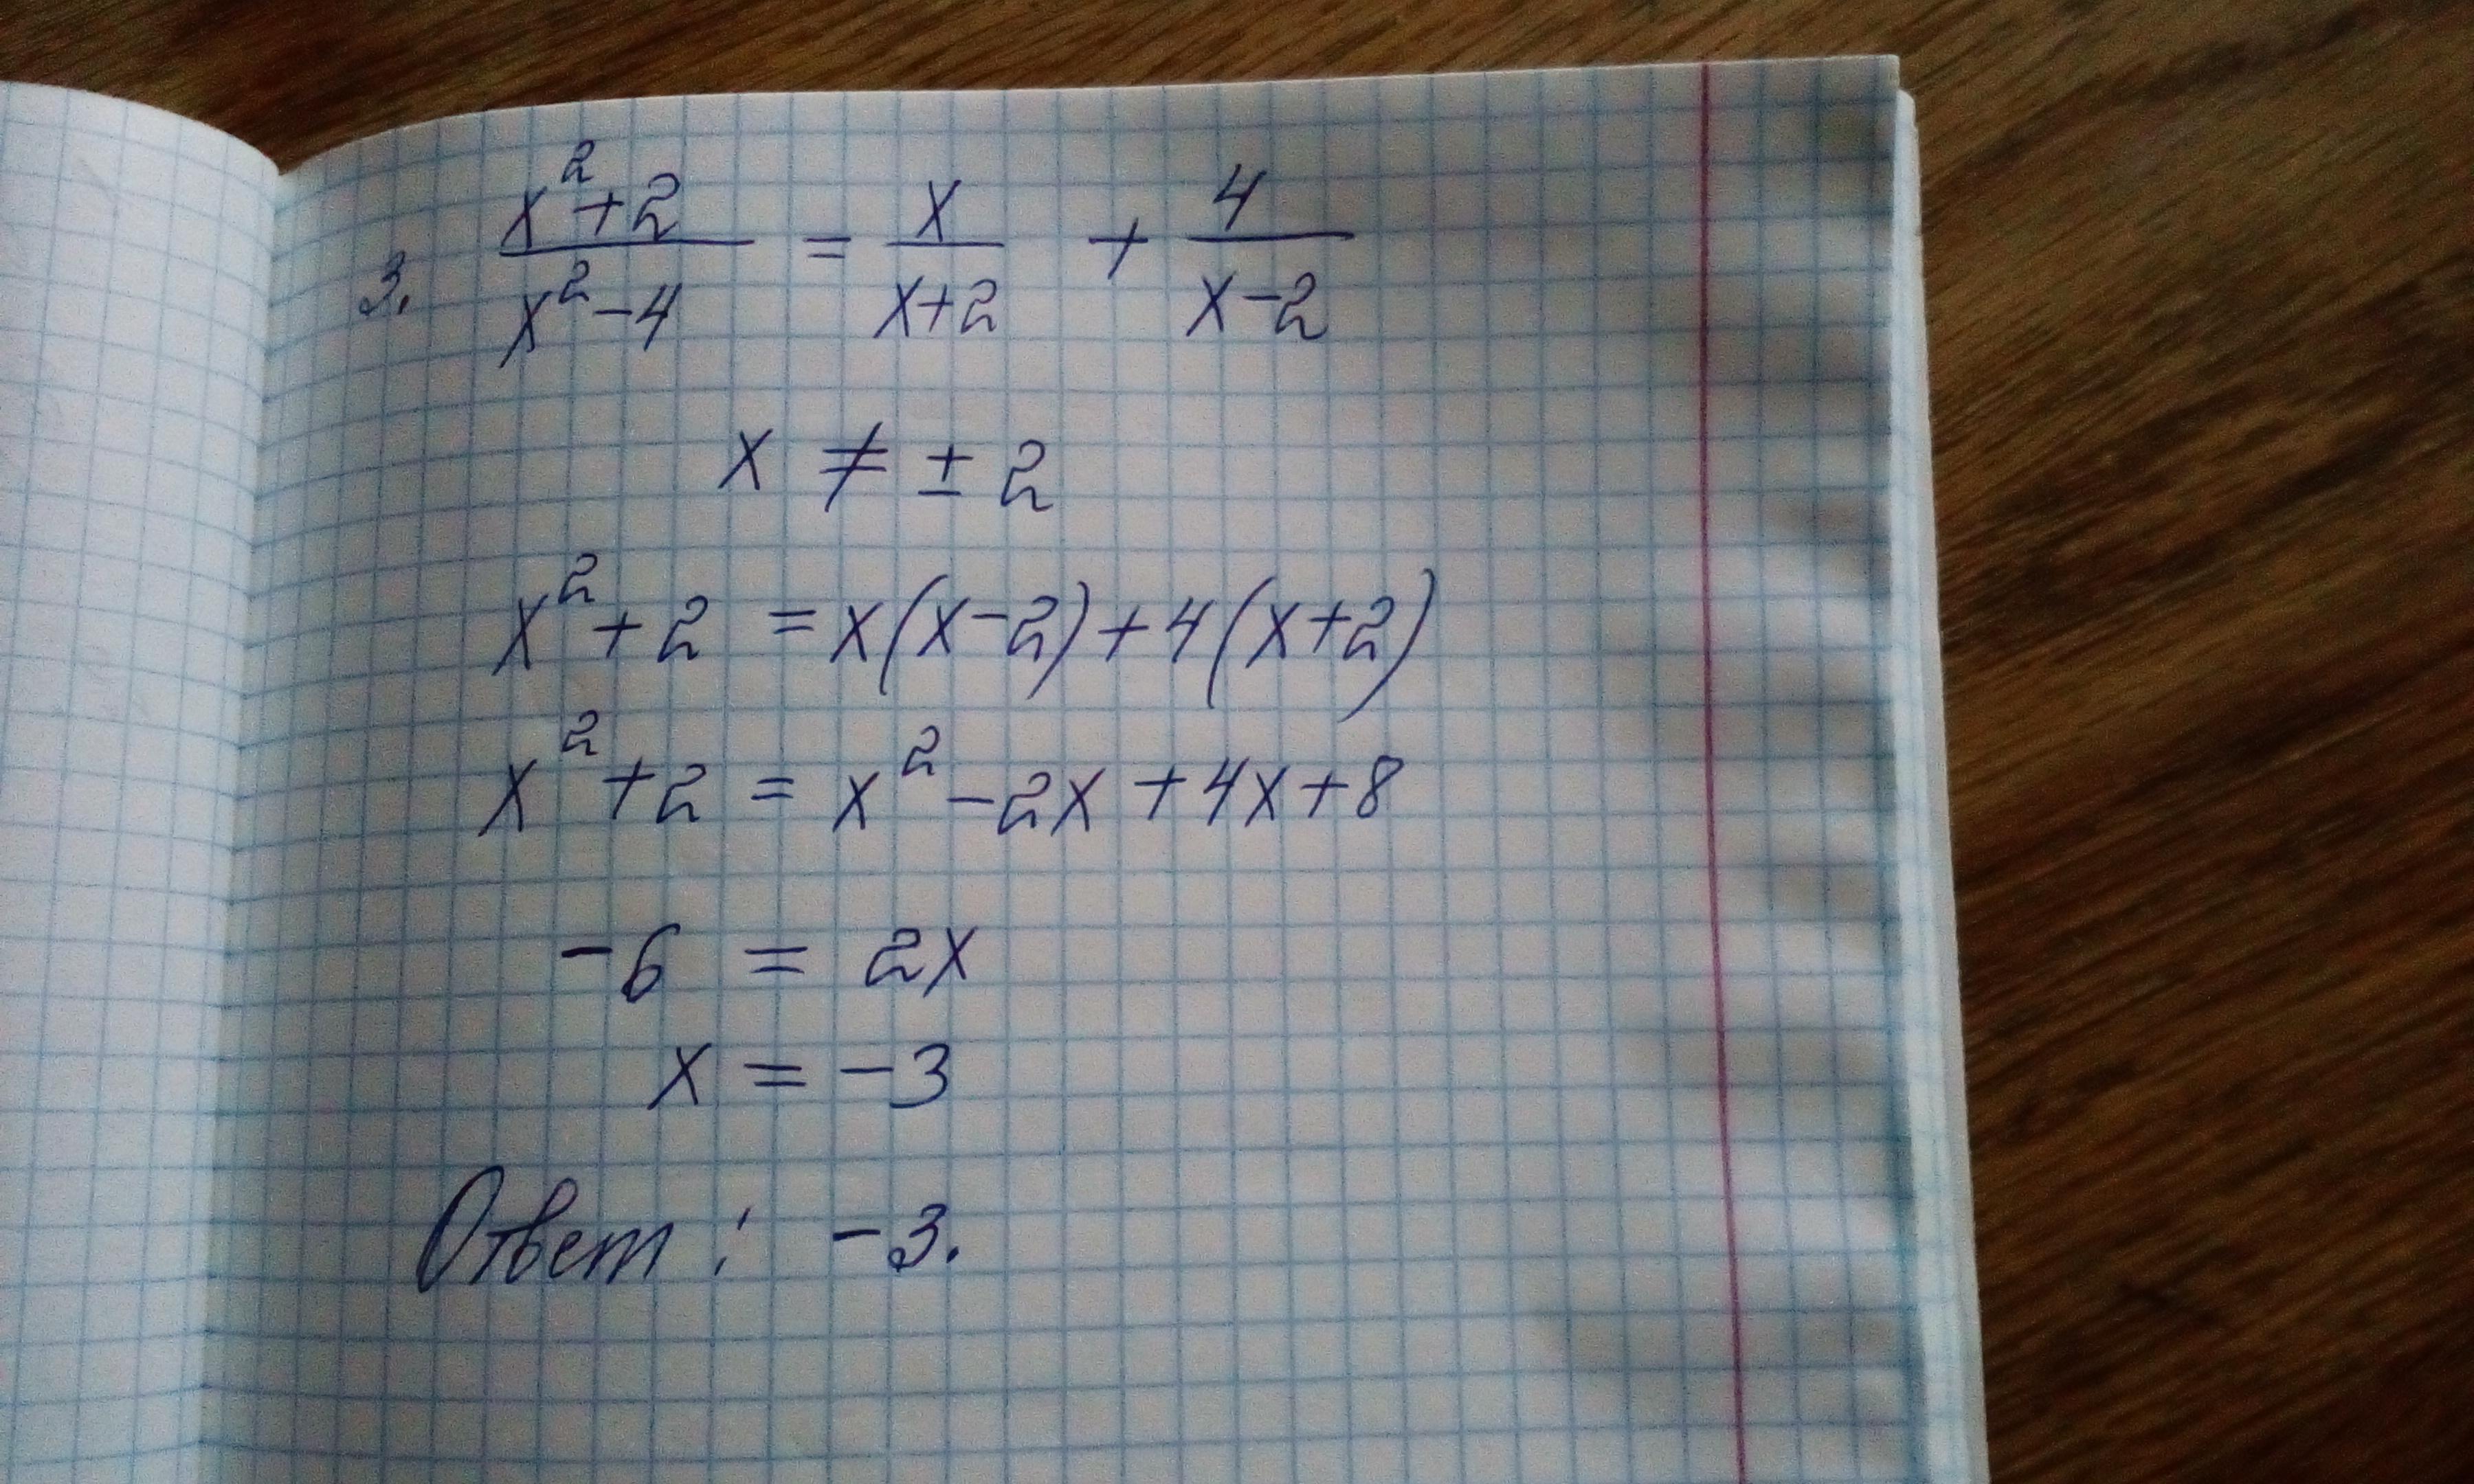 3. (x²+2)/(x²-4) = x/(x+2) + 4/(x-2)
x ≠ ± 2
x²+2 = x(x-2)+4(x+2)
x²+2 = x²-2x+4x+8
-6 = 2x
x = -3
Ответ: -3.